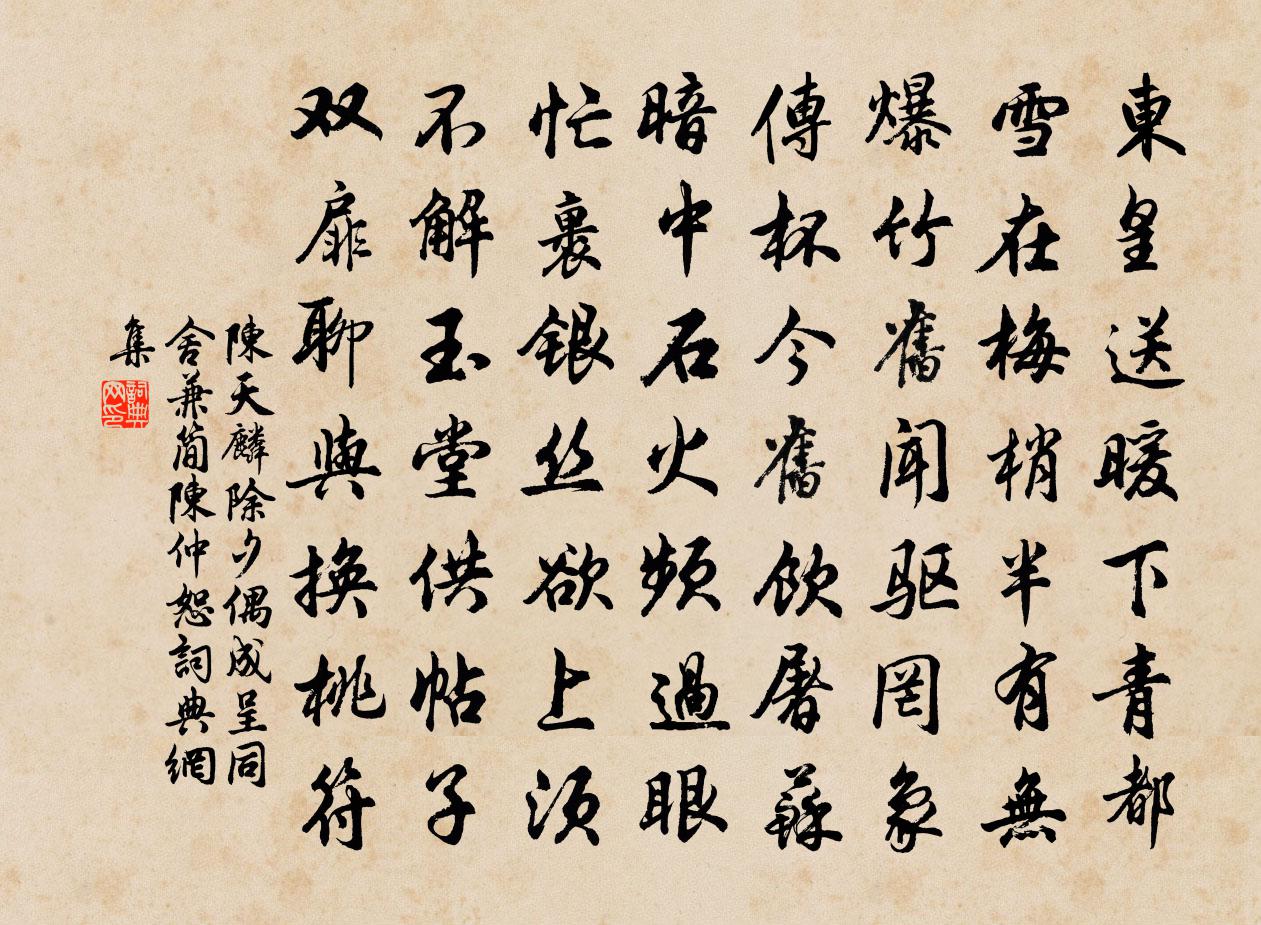 東皇送暖下青都
雪在梅梢半有無
爆竹舊聞驱罔象
傳杯今舊飲屠蘇
暗中石火頻過眼
忙裏銀丝欲上須
不解玉堂供帖子
双扉聊與換桃符
陳天麟除夕偶成呈同
舍兼简陳仲恕詞典網
集
詞典网印